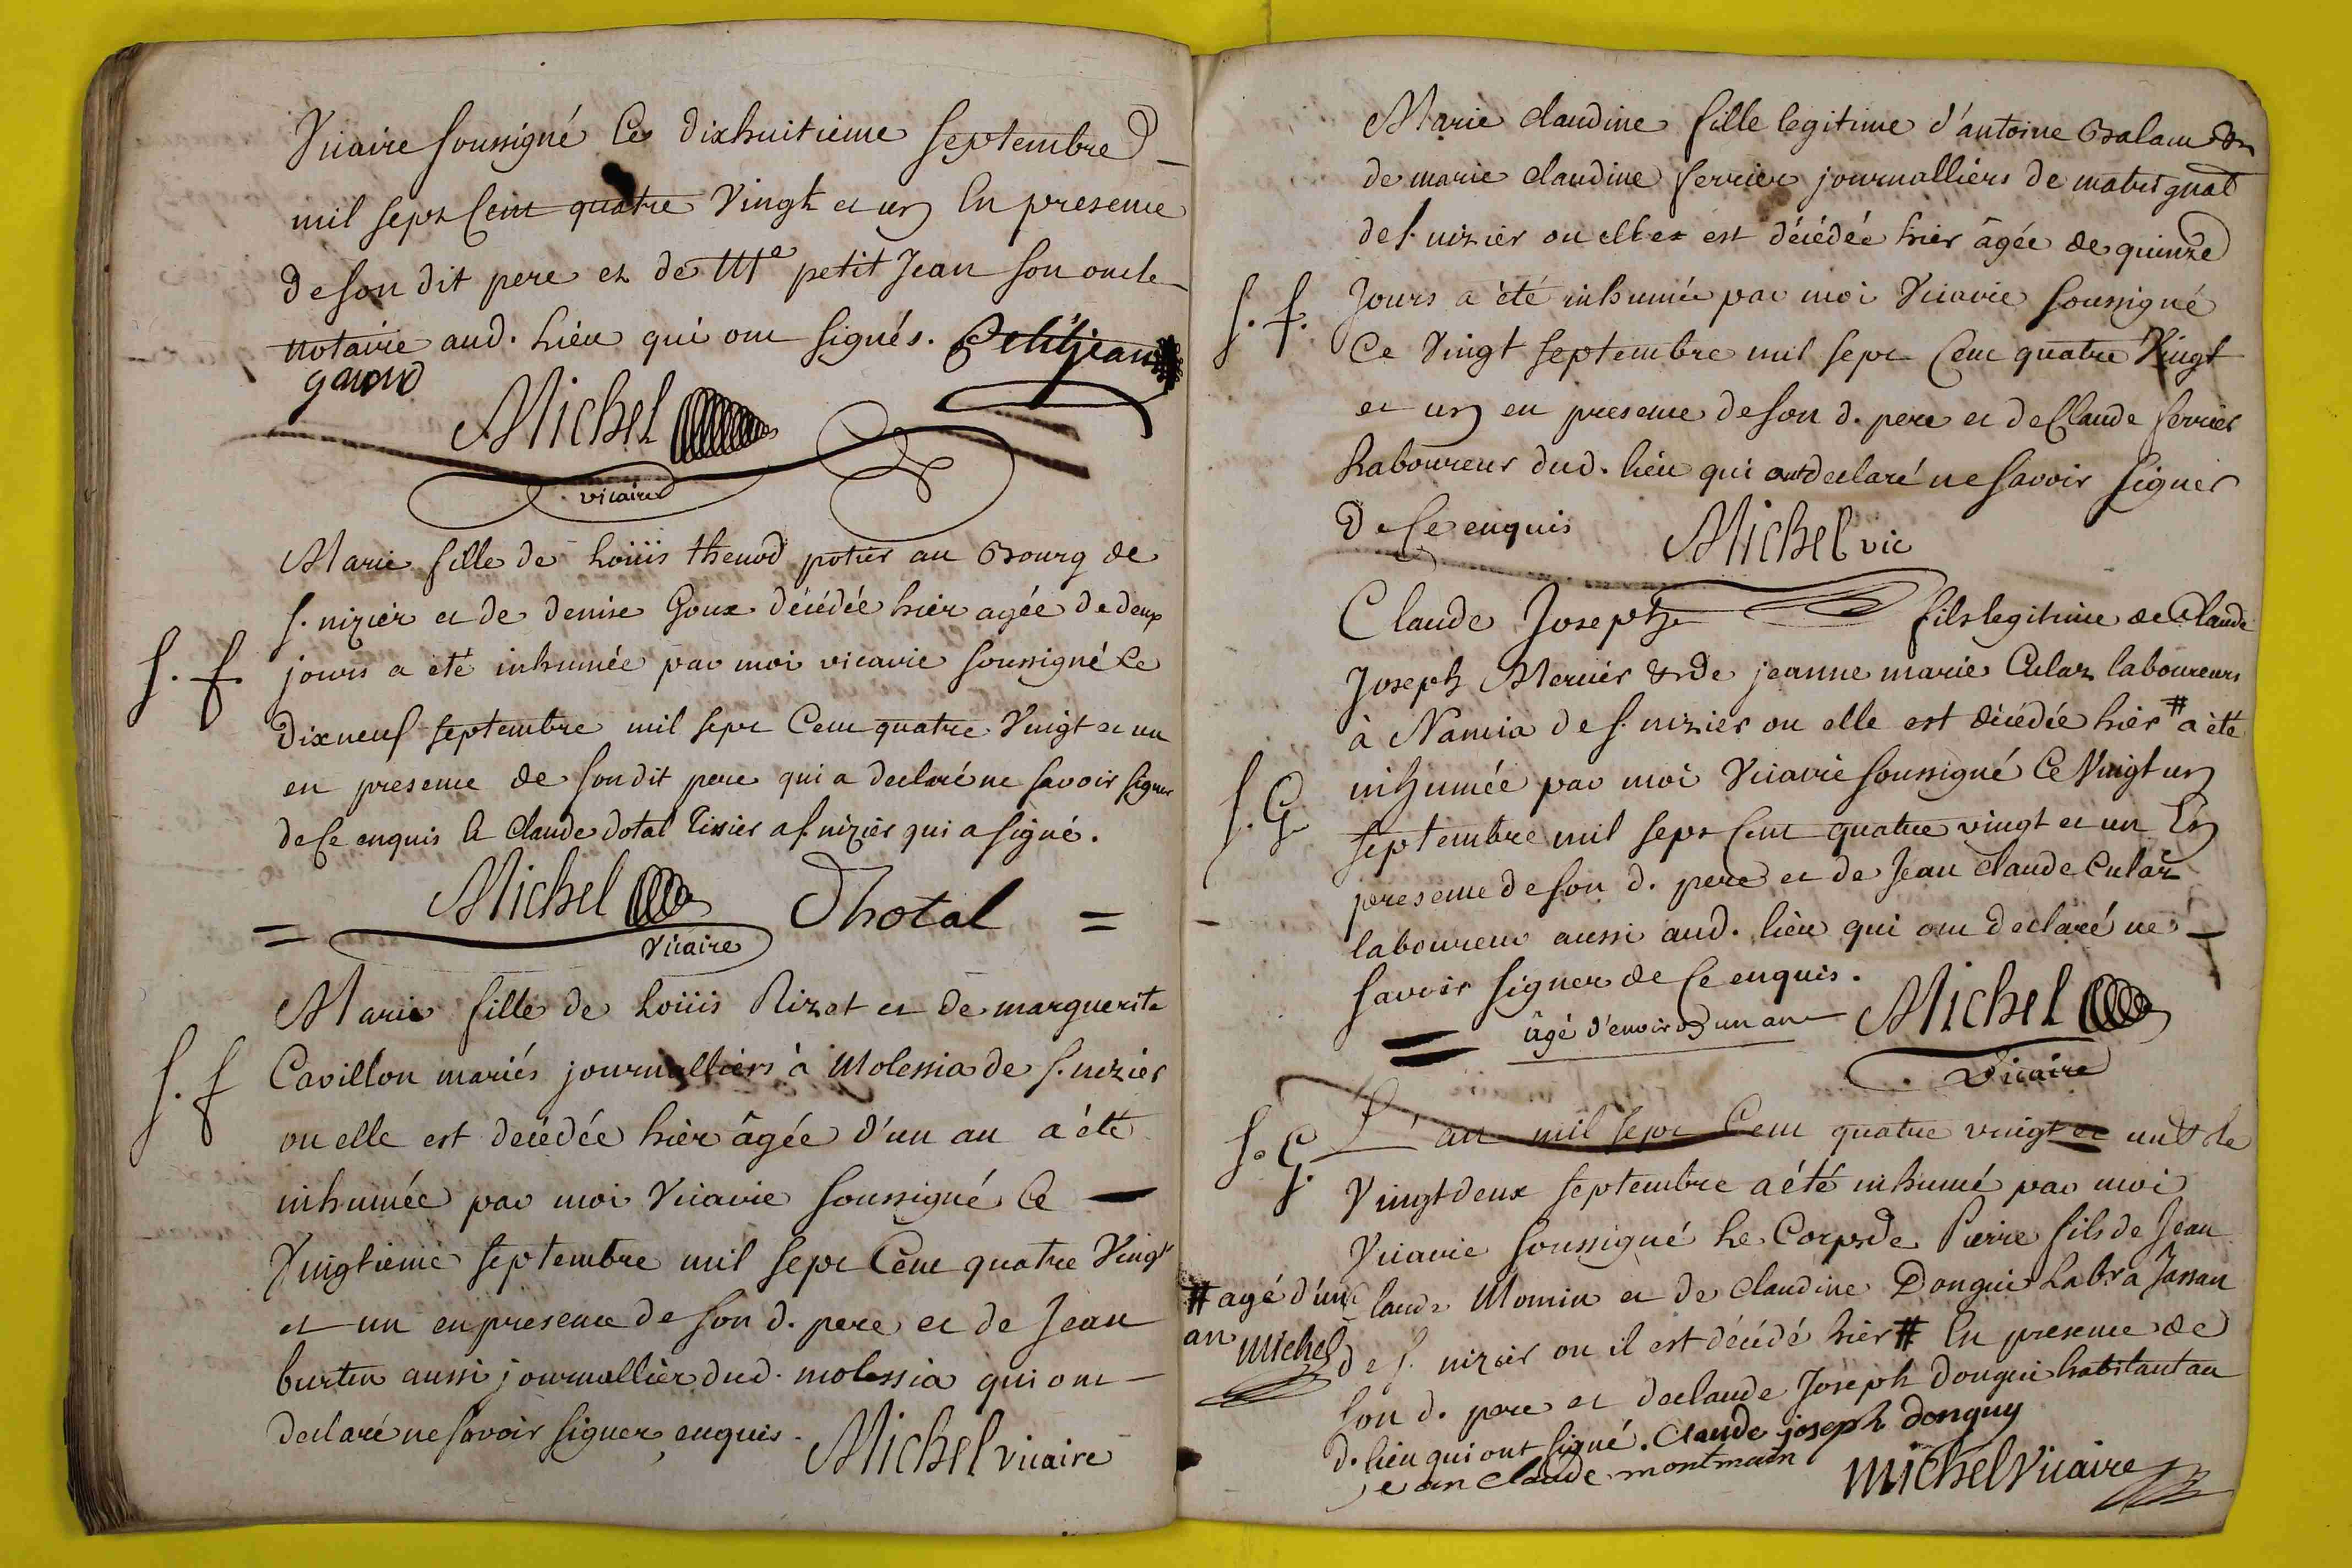 Vicaire soussigné Ce dixhuitieme septembre
mil sept Cent quatre Vingt et un En presence
de son dit pere et de Me petit Jean son oncle
notaire aud. Lieu qui ont signés. Petitjean
Michel
vicaire
Marie fille de Loüis thenod potier au Bourg de
s. nizier et de denise Goux décédée hier agée de deux
s. f. jours a eté inhumée par moi vicaire soussigné Ce
dixneuf septembre mil sept Cent quatre Vingt et un
en presence de son dit pere qui a declaré ne savoir signer
de Ce enquis & Claude dotal tissier a s. nizier qui a signé.
Michel Dhotal
Vicaire
Marie fille de Loüis Rizet et de marguerite
s. f Cavillon mariés journalliers à Molessia de s. nizier
ou elle est decédée hier âgée d'un an a été
inhumée par moi Vicaire soussigné Ce
Vingtieme septembre mil sept Cent quatre Vingt
et un en presence de son d. pere et de Jean
burtin aussi journallier dud. molessia qui ont
declaré ne savoir signer, enquis. Michel vicaire
Marie claudine fille legitime d'antoine Balam &
de marie claudine ferrier journalliers de matrignat
de s. nizier ou elle est décédée hier âgée de quinze
s. f. Jours a été inhumée par moi Vicaire soussigné
Ce Vingt septembre mil sept Cent quatre Vingt
et un en presence de son d. pere et de Claude ferrier
Laboureur dud. lieu qui ont declaré ne savoir signer
de Ce enquis Michel vic
Claude Joseph fils legitime de Claude
Joseph Mercier & de jeanne marie Culaz laboureurs
à Namia de s. nizier ou elle est décédée hier # a été
s. G inhumée par moi Vicaire soussigné Ce Vingt un
septembre mil sept Cent quatre vingt et un En
presence de son d. pere et de Jean Claude Culaz
laboureur aussi aud. lieu qui ont declaré ne
savoir signer de Ce enquis.
âgé d'environ un an Michel
Vicaire
s. G. L'an mil sept Cent quatre vingt et un & le
Vingtdeux septembre a été inhumé par moi
Vicaire soussigné Le Corps de Pierre fils de Jean
# agé d'un Claude Momin et de Claudine Dongui Lab.r a Jassan
an Michel de s. nizier ou il est décédé hier # En presence de
son d. pere et de claude Joseph dongui habitant au
d. lieu qui ont signé. Claude joseph donguy
jean claude montmain Michel Vicaire